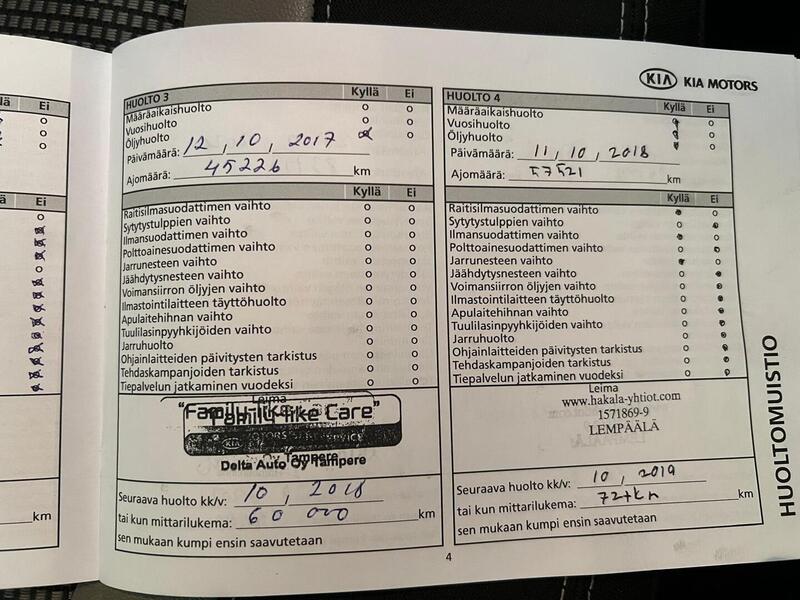 lä Ei
o
o
o
o
o
km
KIA KIA MOTORS
HUOLTO 3 Kyllä Ei
Määräaikaishuolto o o
Vuosihuolto o o
Öljyhuolto o
Päivämäärä: 12, 10, 2017
Ajomäärä: 45226 km
Kyllä Ei
Raitisilmasuodattimen vaihto o o
Sytytystulppien vaihto o o
Ilmansuodattimen vaihto o o
Polttoainesuodattimen vaihto o o
Jarrunesteen vaihto o o
Jäähdytysnesteen vaihto o o
Voimansiirron öljyjen vaihto o o
Ilmastointilaitteen täyttöhuolto o o
Apulaitehihnan vaihto o o
Tuulilasinpyyhkijöiden vaihto o o
Jarruhuolto o o
Ohjainlaitteiden päivitysten tarkistus o o
Tehdaskampanjoiden tarkistus o o
Tiepalvelun jatkaminen vuodeksi o o
Leima
"Family-like Care"
KIA MOTORS SERVICE
Delta Auto Oy Tampere
Seuraava huolto kk/v: 10, 2018
tai kun mittarilukema: 60 000 km
sen mukaan kumpi ensin saavutetaan
HUOLTO 4 Kyllä Ei
Määräaikaishuolto o
Vuosihuolto o
Öljyhuolto o
Päivämäärä: 11, 10, 2018
Ajomäärä: 57521 km
Kyllä Ei
Raitisilmasuodattimen vaihto o
Sytytystulppien vaihto o
Ilmansuodattimen vaihto o
Polttoainesuodattimen vaihto o
Jarrunesteen vaihto o
Jäähdytysnesteen vaihto o
Voimansiirron öljyjen vaihto o
Ilmastointilaitteen täyttöhuolto o
Apulaitehihnan vaihto o
Tuulilasinpyyhkijöiden vaihto o
Jarruhuolto o
Ohjainlaitteiden päivitysten tarkistus o
Tehdaskampanjoiden tarkistus o
Tiepalvelun jatkaminen vuodeksi o
Leima
www.hakala-yhtiot.com
1571869-9
LEMPÄÄLÄ
Seuraava huolto kk/v: 10, 2019
tai kun mittarilukema: 72tkm
sen mukaan kumpi ensin saavutetaan
HUOLTOMUISTIO
4